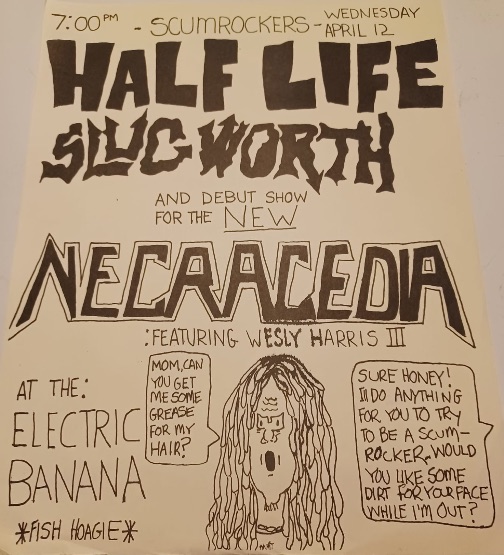 7:00 PM - SCUMROCKERS - WEDNESDAY APRIL 12
HALF LIFE
SLUGWORTH
AND DEBUT SHOW
FOR THE NEW
NECRACEDIA
:FEATURING WESLY HARRIS III
MOM, CAN
YOU GET
ME SOME
GREASE
FOR MY
HAIR?
SURE HONEY!
I'll DO ANYTHING
FOR YOU TO TRY
TO BE A SCUM-
ROCKER, WOULD
YOU LIKE SOME
DIRT FOR YOUR FACE
WHILE I'M OUT?
AT THE:
ELECTRIC
BANANA
*FISH HOAGIE*